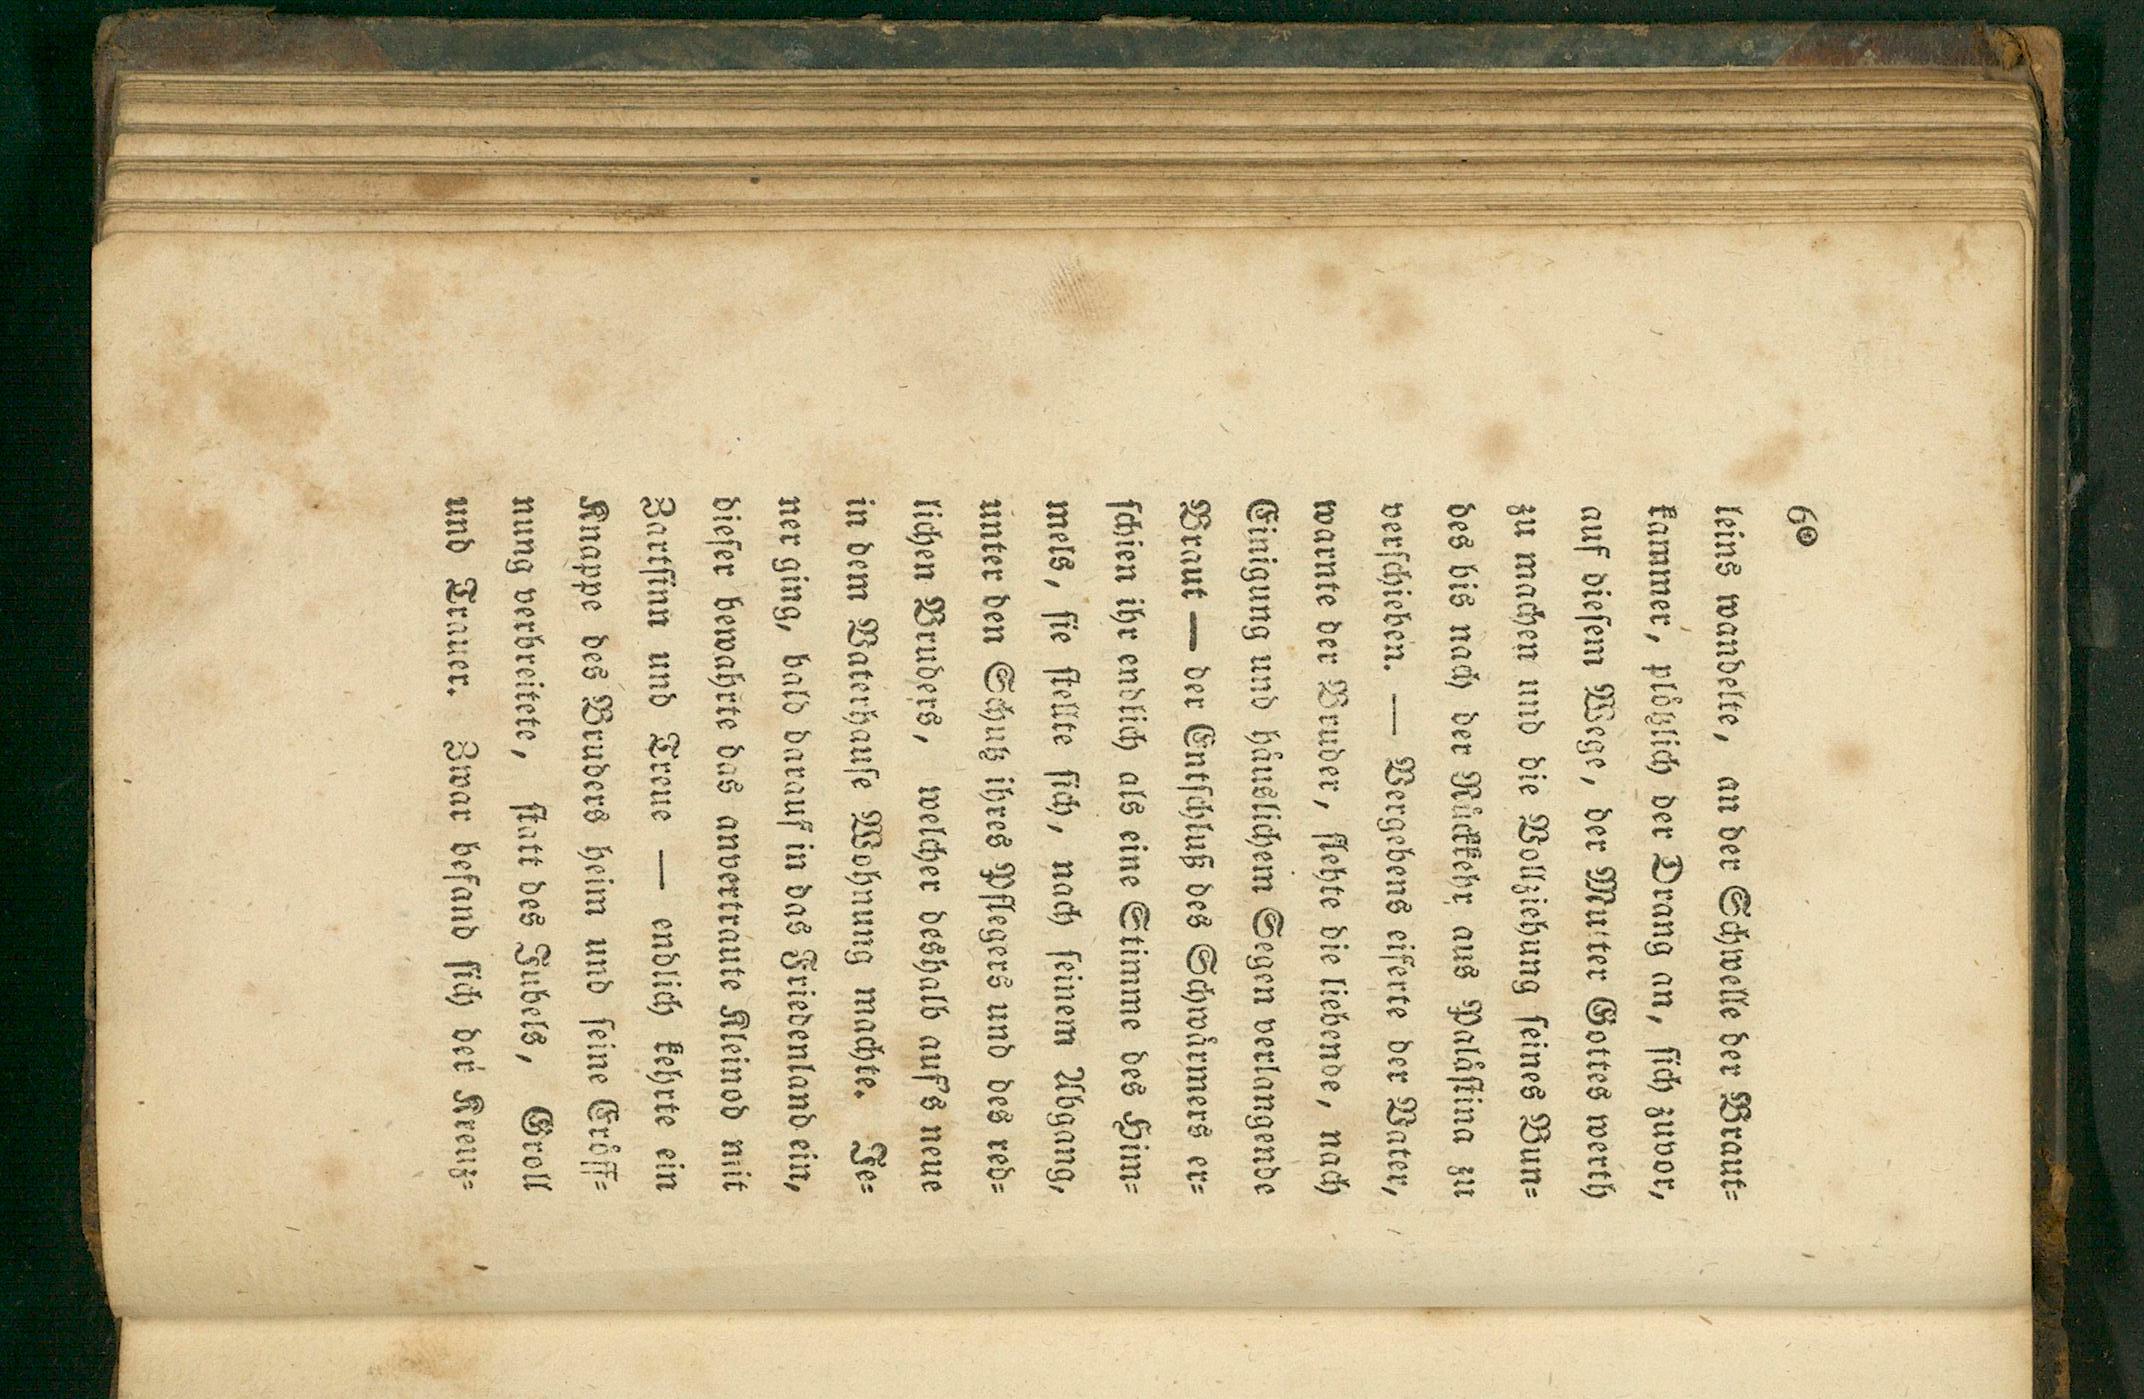 60
leins wandelte, an der Schwelle der Braut=
kammer, plötzlich der Drang an, sich zuvor,
auf diesem Wege, der Mutter Gottes werth
zu machen und die Vollziehung seines Bun=
des bis nach der Rückkehr aus Palästina zu
verschieben. — Vergebens eiferte der Vater,
warnte der Bruder, flehte die liebende, nach
Einigung und häuslichem Segen verlangende
Braut — der Entschluß des Schwärmers er=
schien ihr endlich als eine Stimme des Him=
mels, sie stellte sich, nach seinem Abgang,
unter den Schutz ihres Pflegers und des red=
lichen Bruders, welcher deshalb auf's neue
in dem Vaterhause Wohnung machte. Je=
ner ging, bald darauf in das Friedenland ein,
dieser bewahrte das anvertraute Kleinod mit
Zartsinn und Treue — endlich kehrte ein
Knappe des Bruders heim und seine Eröff=
nung verbreitete, statt des Jubels, Groll
und Trauer. Zwar befand sich der Kreuz=